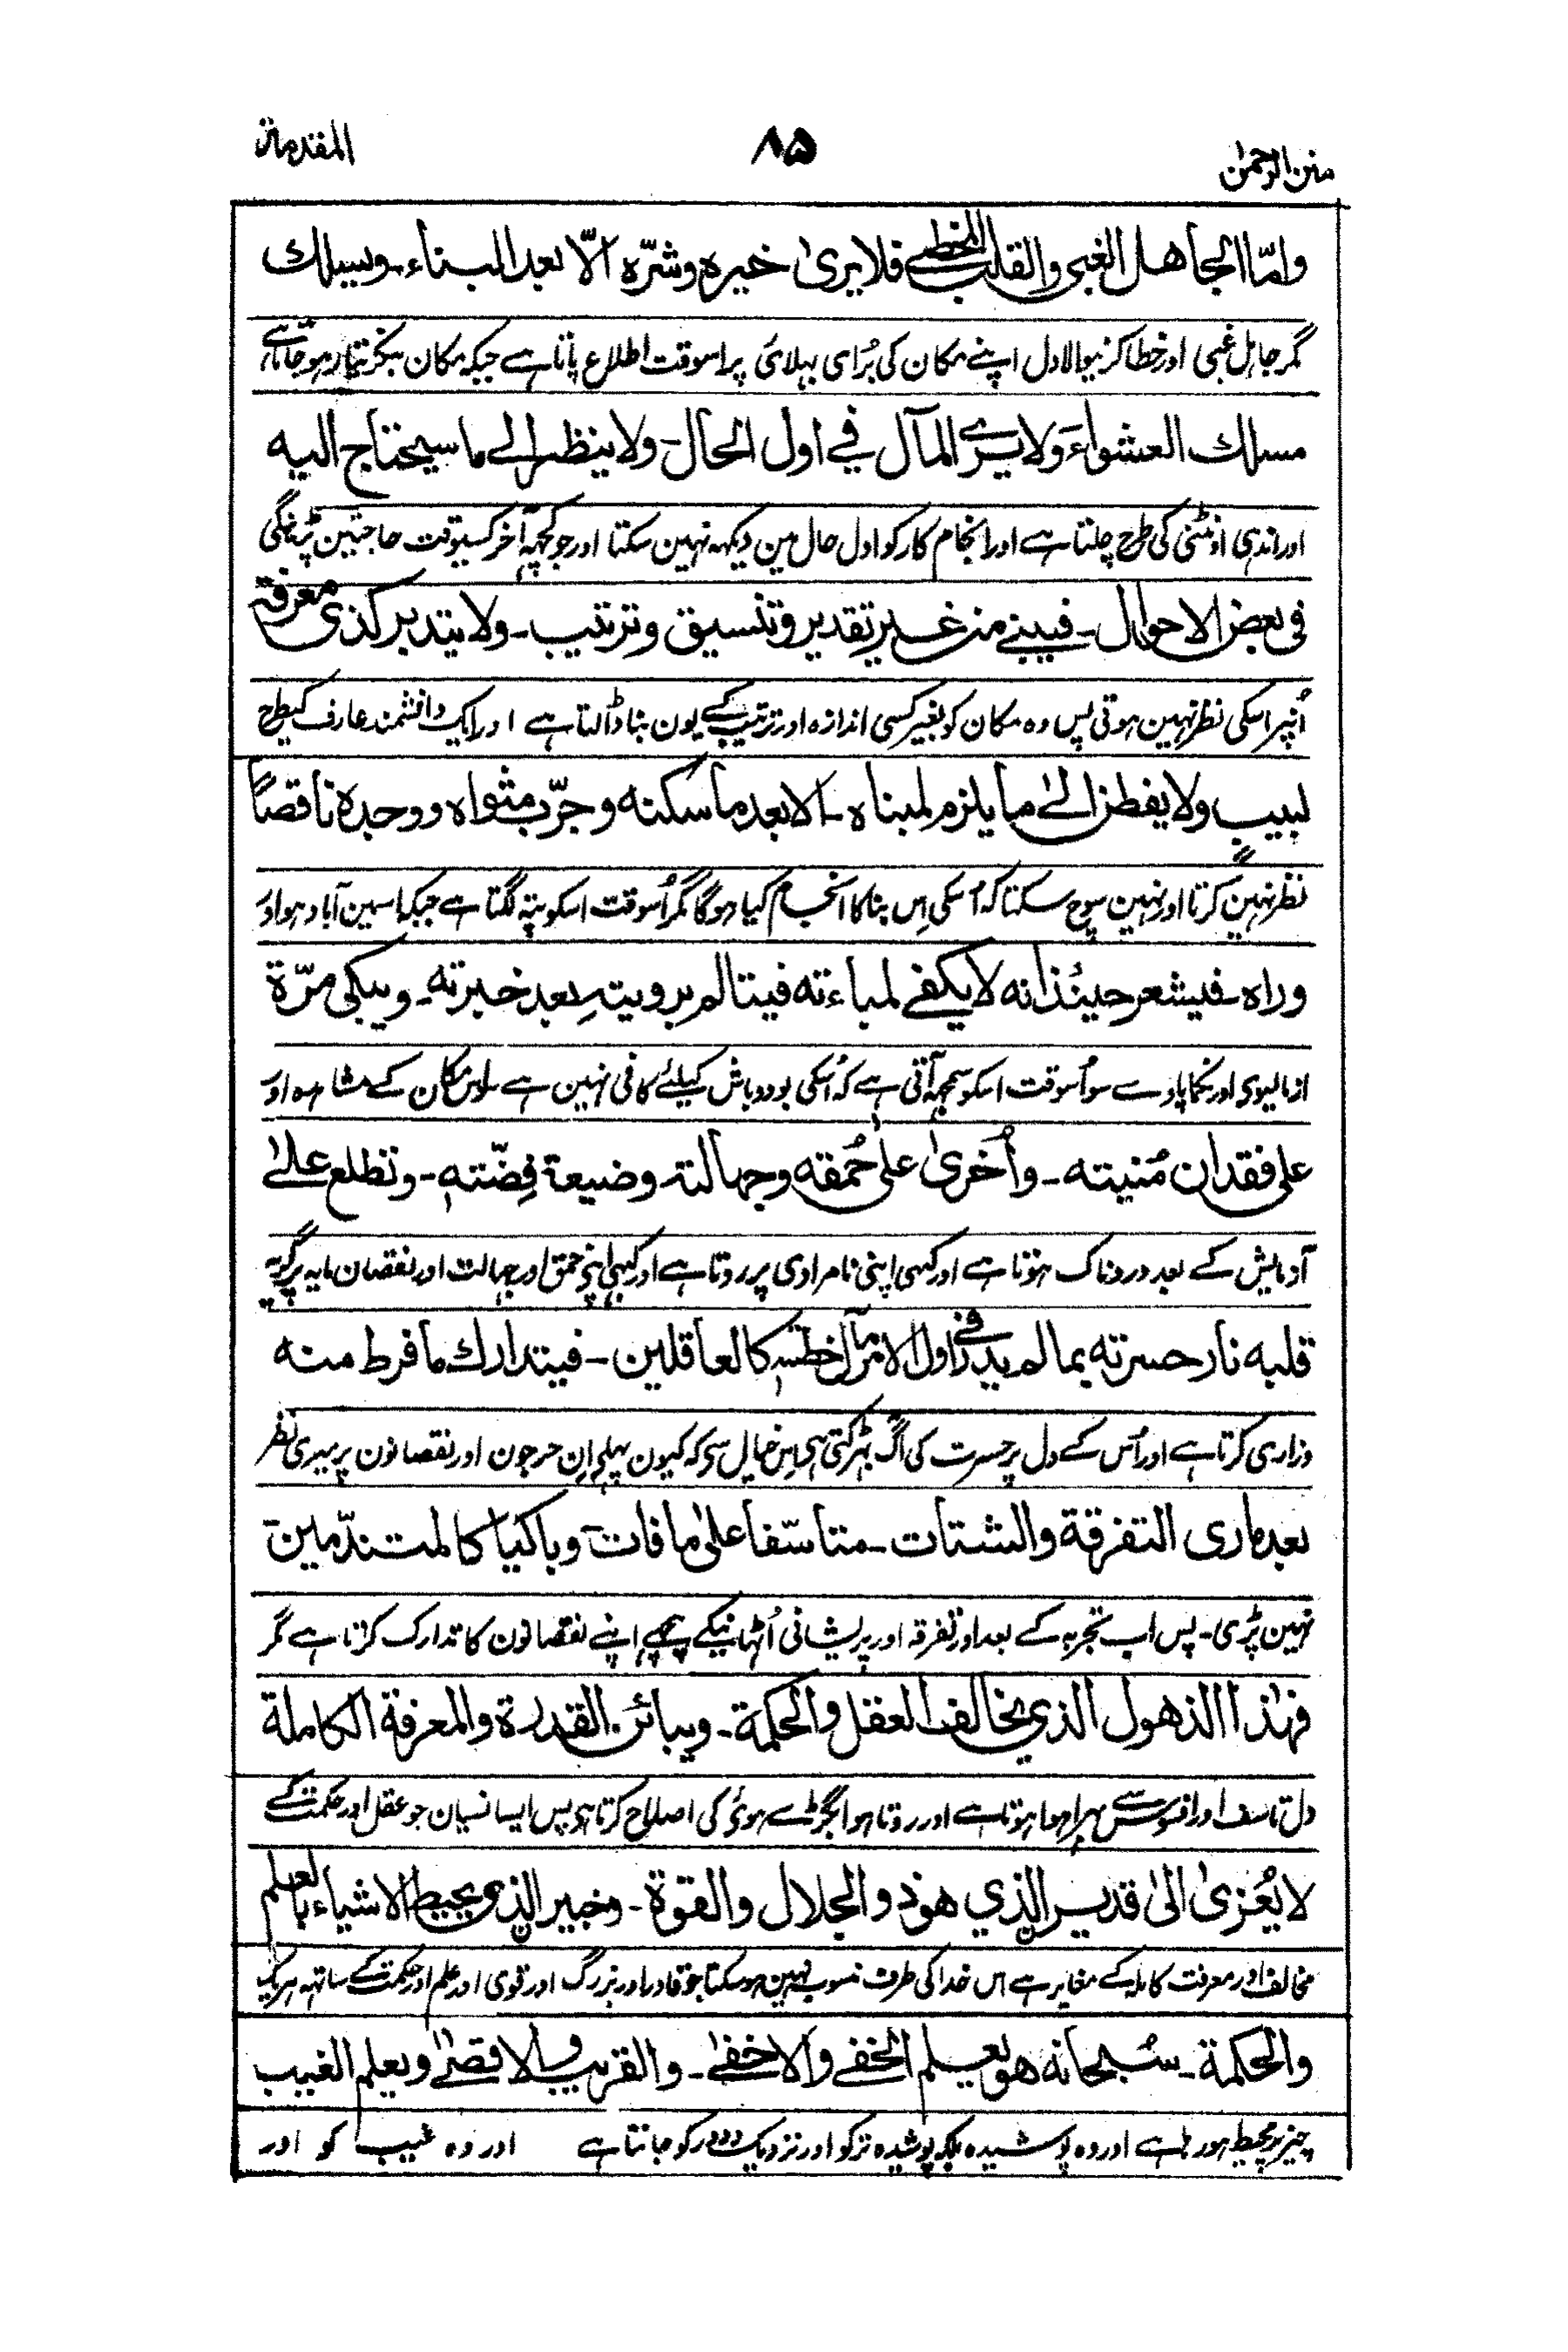 منن الرحمٰن ۸۵ المقدمة
وامّا الجاهل الغبی والقلب المخطی فلا یریٰ خیره وشرّه الّا بعد البناء۔ ویسلك
مگر جاہل غبی اور خطا کرنیوالا دل اپنے مکان کی بُرائی بہلائی پر اسوقت اطلاع پاتا ہے جبکہ مکان بنکر تیار ہو جاتا ہے
مسلك العشواءَ ولا یری المآل فی اول الحال۔ ولا ینظر الی ما سیحتاج الیه
اور اندہی اونٹنی کی طرح چلتا ہے اور انجام کار کو اول حال مین دیکہہ نہین سکتا اور جو کچہہ آخر کسیوقت حاجتین پڑینگی
فی بعض الاحوال۔ فیبنی من غیر تقدیر وتنسیق وترتیب۔ ولا یتدبر کذی معرفة
اُنپر اسکی نظر نہین ہوتی پس وہ مکان کو بغیر کسی اندازہ اور ترتیب کے یون بنا ڈالتا ہے اور ایک دانشمند عارف کیطرح
لبیب ولا یفطن الیٰ ما یلزم لمبناه۔ الا بعد ما سکنه وجرّب مثواه ووجده ناقصًا
نظر نہین کرتا اور نہین سوچ سکتا کہ اُسکی اِس بنا کا انجام کیا ہوگا مگر اُسوقت اسکو پتہ لگتا ہے جبکہ اسمین آباد ہو اور
وراه۔ فیشعر حینئذ انه لا یکفی لمباءته فیتالم برویتهِ بعد خبرته۔ ویبکی مرّة
ازمالیوی اور نکما پاوے سو اُسوقت اسکو سمجہہ آتی ہے کہ اُسکی بودوباش کیلئے کافی نہین ہے سو اس مکان کے مشاہدہ اور
علی فقدان مُنیته۔ واُخریٰ علی حُمقه وجهالته وضیعة فِضّته۔ وتطلع علیٰ
آزمایش کے بعد دردناک ہوتا ہے اور کبہی اپنی نامرادی پر روتا ہے اور کبہی اپنی حمق اور جہالت اور نقصان مایہ پر گریہ
قلبه نار حسرته بما لم یدر فی اول الامر مآل خطته کالعاقلین۔ فیتدارك ما فرط منه
وزاری کرتا ہے اور اُس کے دل پر حسرت کی آگ بہڑکتی ہی اِس خیال سے کہ کیون پہلے ان حرجون اور نقصانون پر میری نظر
بعد ما رای التفرقة والشتات۔ متاسّفا علیٰ ما فات وباکیا کالمتندّمین۔
نہین پڑی۔ پس اب تجربہ کے بعد اور تفرقہ اور پریشانی اُٹہانیکے پیچہے اپنے نقصانون کا تدارک کرتا ہے مگر
فهٰذا الذهول الذی یخالف العقل والحکمة۔ ویبائن القدرة والمعرفة الکاملة
دل تاسف اور افسوس سے بہرا ہوا ہوتا ہے اور روتا ہوا بگڑے ہوئی کی اصلاح کرتا ہی پس ایسا نسیان جو عقل اور حکمت کے
لا یُعزیٰ الیٰ قدیر الذی هو ذو الجلال والقوة۔ وخبیر الذی یحیط الاشیاء بالعلم
مخالف اور معرفت کاملہ کے مغایر ہے اس خدا کی طرف منسوب نہین ہو سکتا جو قادر اور بزرگ اور قوی اور علم اور حکمت کے ساتہہ ہر یک
والحکمة۔ سُبحانه هو یعلم الخفی والاخفیٰ۔ والقریب والاقصیٰ ویعلم الغیب
چیز پر محیط ہو رہا ہے اور وہ پوشیدہ بلکہ پوشیدہ تر کو اور نزدیک و دور کو جانتا ہے اور وہ غیب کو اور